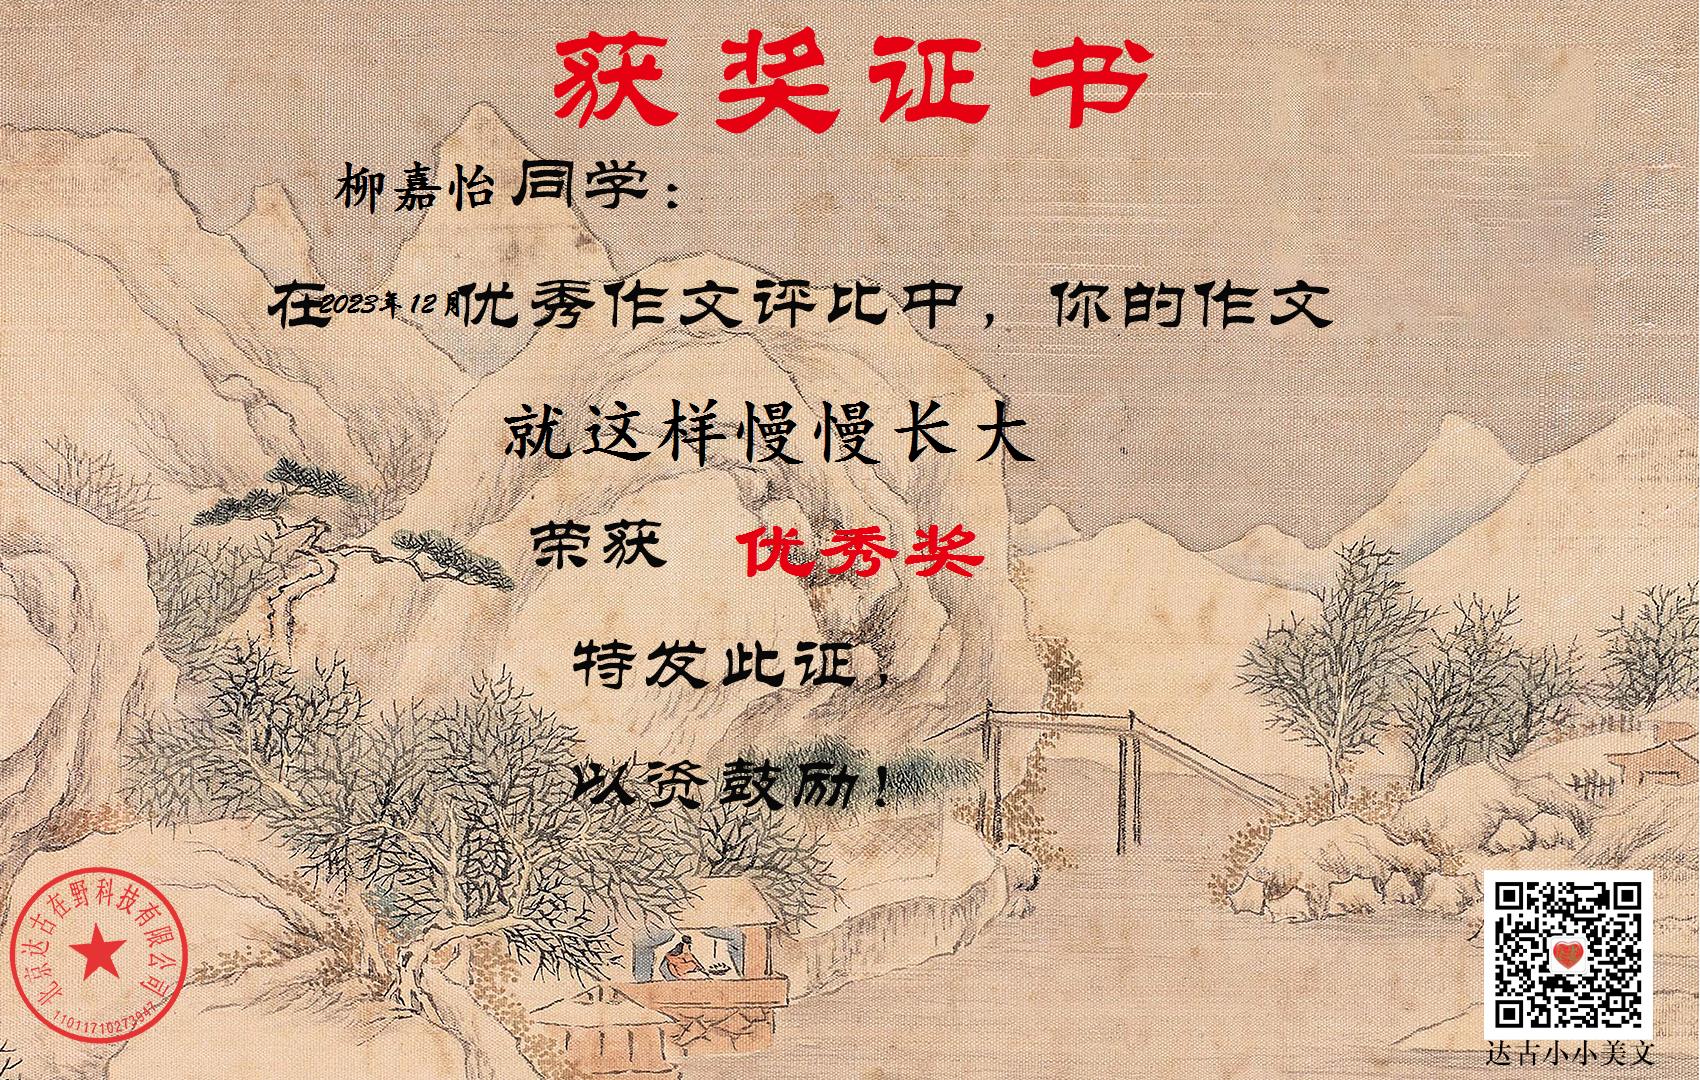 获奖证书
柳嘉怡同学：
在2023年12月优秀作文评比中，你的作文
就这样慢慢长大
荣获 优秀奖
特发此证，
以资鼓励！
北京达古在野科技有限公司
11011710273947
达古小小美文